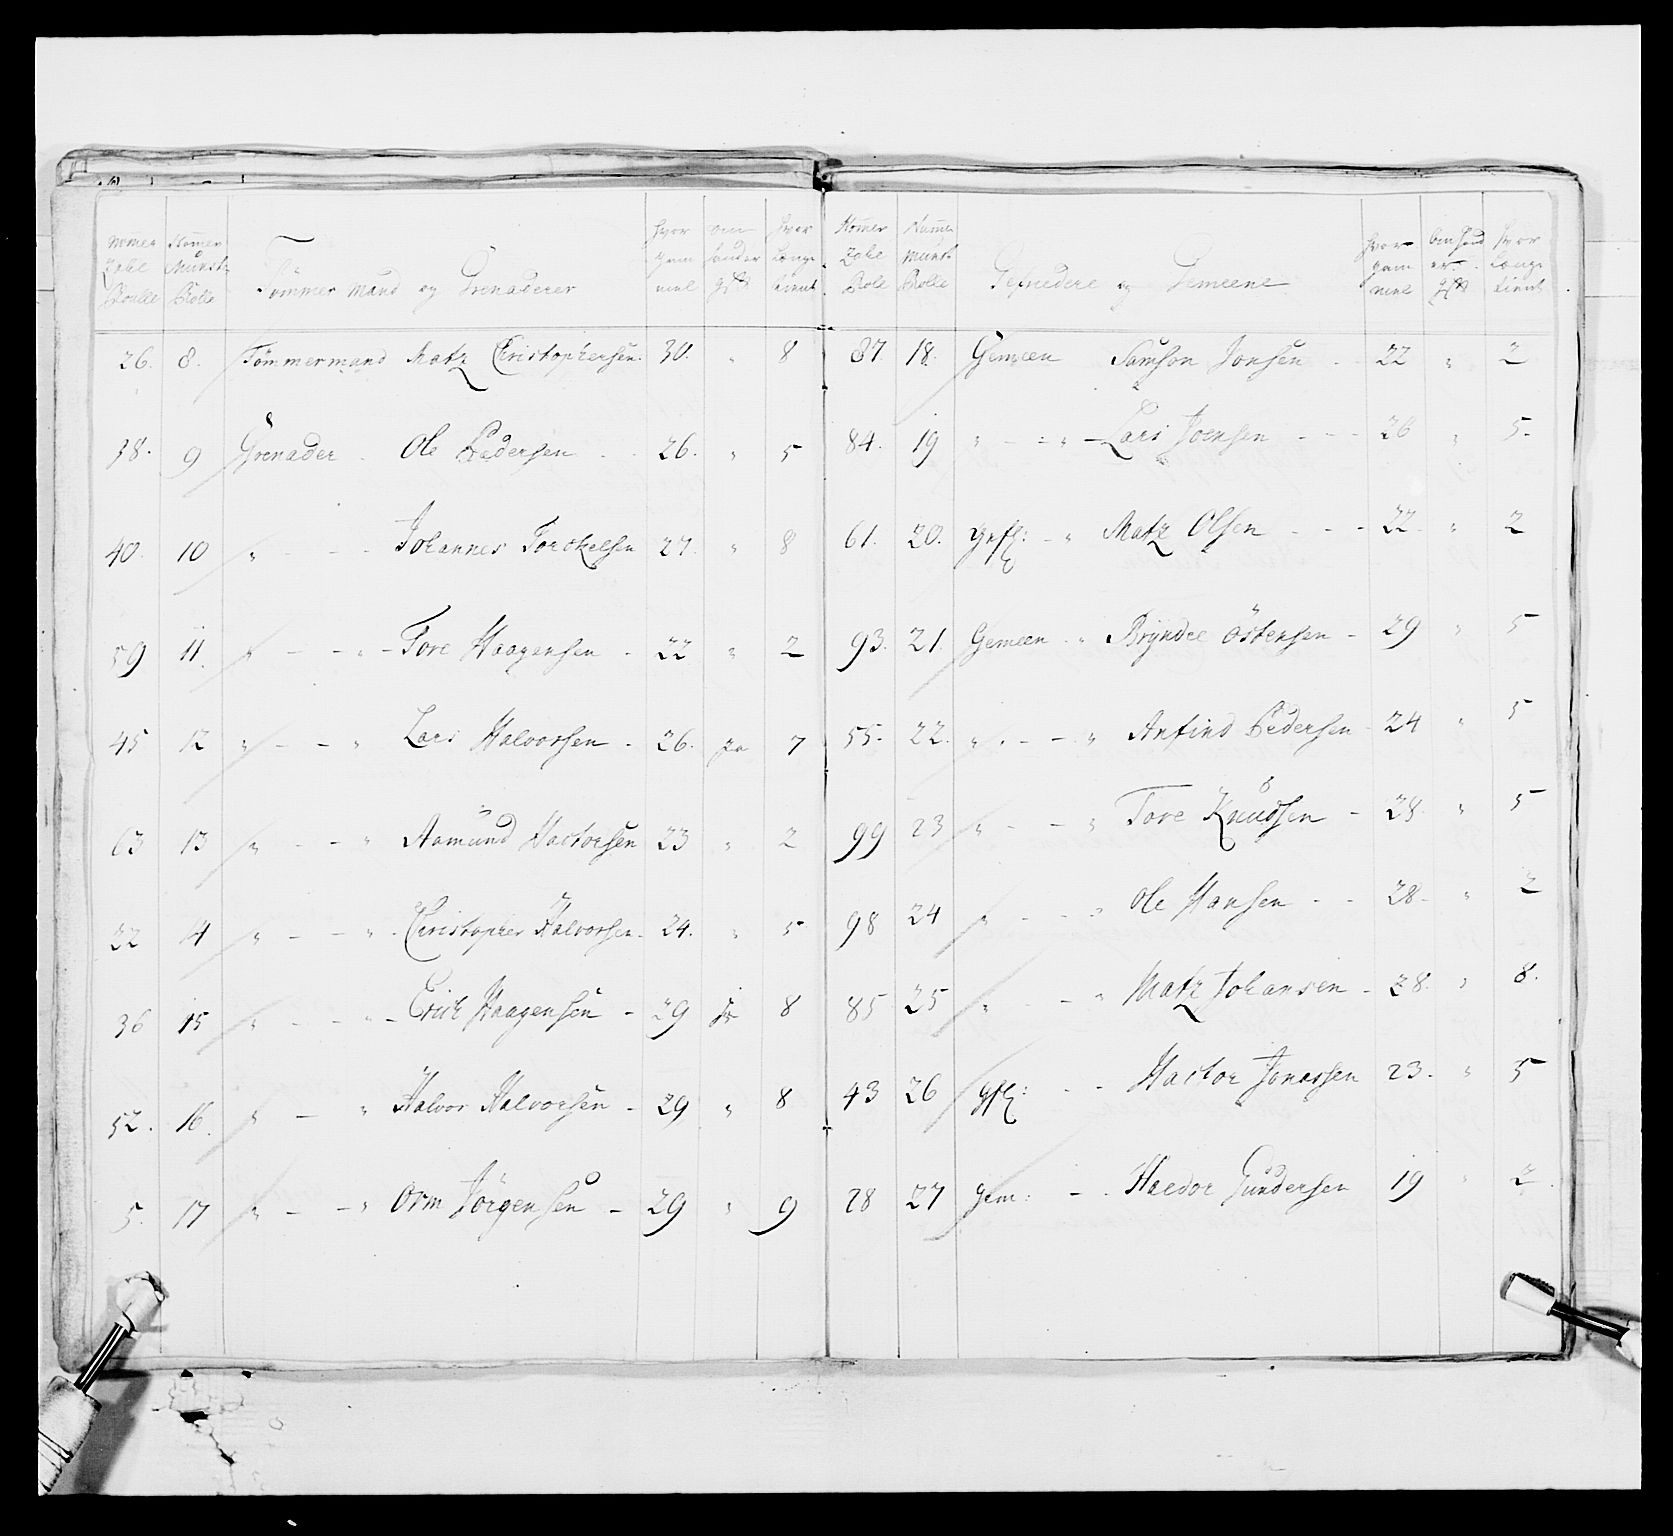 Nomer Zahl Roulle | Nomer Munst: Rolle | Tømmer mand og Grenaderer | hvor gam mel | om han er gift | hvor Længe tient
26. 8. Tømmermand Matz Christophersen. 30. " 8
38. 9 Grenader Ole Pedersen 26. " 5
40. 10 " - - Johannes Torckelsen 27. " 8
59 11. " - - " - Tore Haagensen - 22 " 2
45 12 " - - " Lars Halvorsen - 26. ja 7
63 13 " - - " Aamund Hactorsen 23 " 2
22 14 " - - " - Christopher Halvorsen - 24. " 5
36 15 " - - " - Erich Haagensen - 29 ja 8
52. 16. " - " Halvor Halvorsen - 29 " 8
5. 17 " - - " Orm Jörgensen - 29 " 9
Nomer Zahl Role | Numer Munst: Rolle | Gefriedere og Gemeene | hvor gam mel | om hand er gift | hvor Længe tient
87 18. Gemeen Samson Jonsen - 22 " 2
84. 19 " - - " - Lars Joensen - - - 26 " 5
61. 20. Gefr: - " Matz Olsen - - - 22 " 2
93. 21. Gemeen " Bryndee Östensen - 29 " 5
55. 22. " - - " Anfind Pedersen - 24 " 5
99 23 " - - " Tore Knudsen - 28 " 5
98 24 " - - " Ole Hansen - - 28. " 2
85 25 " - - " Matz Johansen - 28. " 8.
43 26 Gfr: - - Hactor Jonassen 23. " 5
28 27 Gem: - - Haedor Gundersen 19 " 2